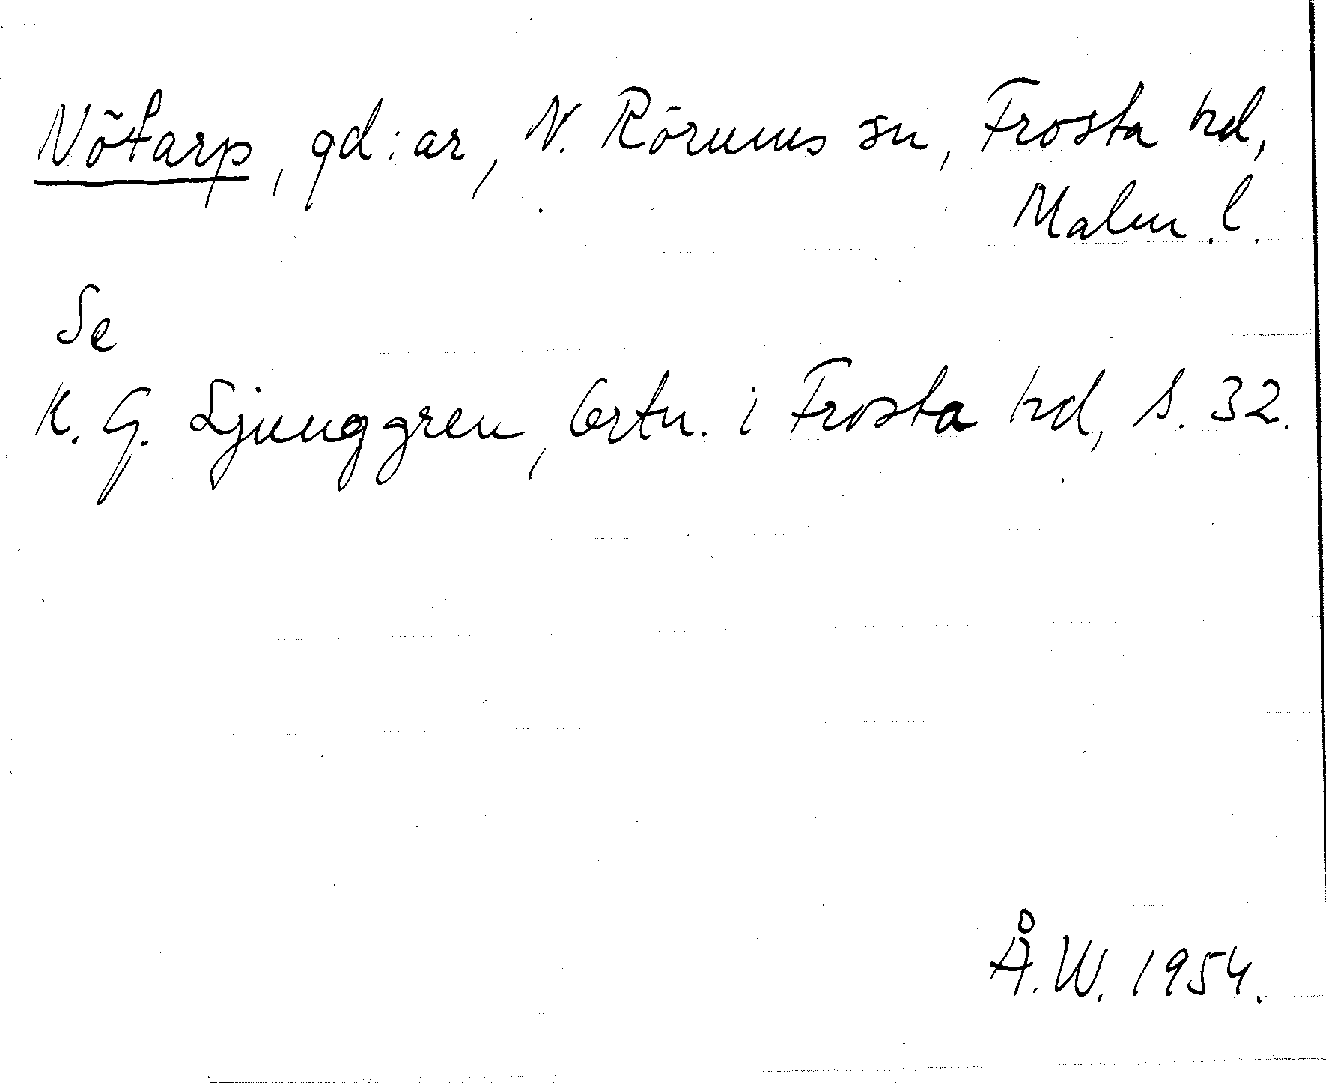 Nötarp, gd:ar, N. Rörums sn, Frosta hd,
Malm. l.
Se
K. G. Ljunggren, Ortn. i Frosta hd, s. 32.
Å.W. 1954.